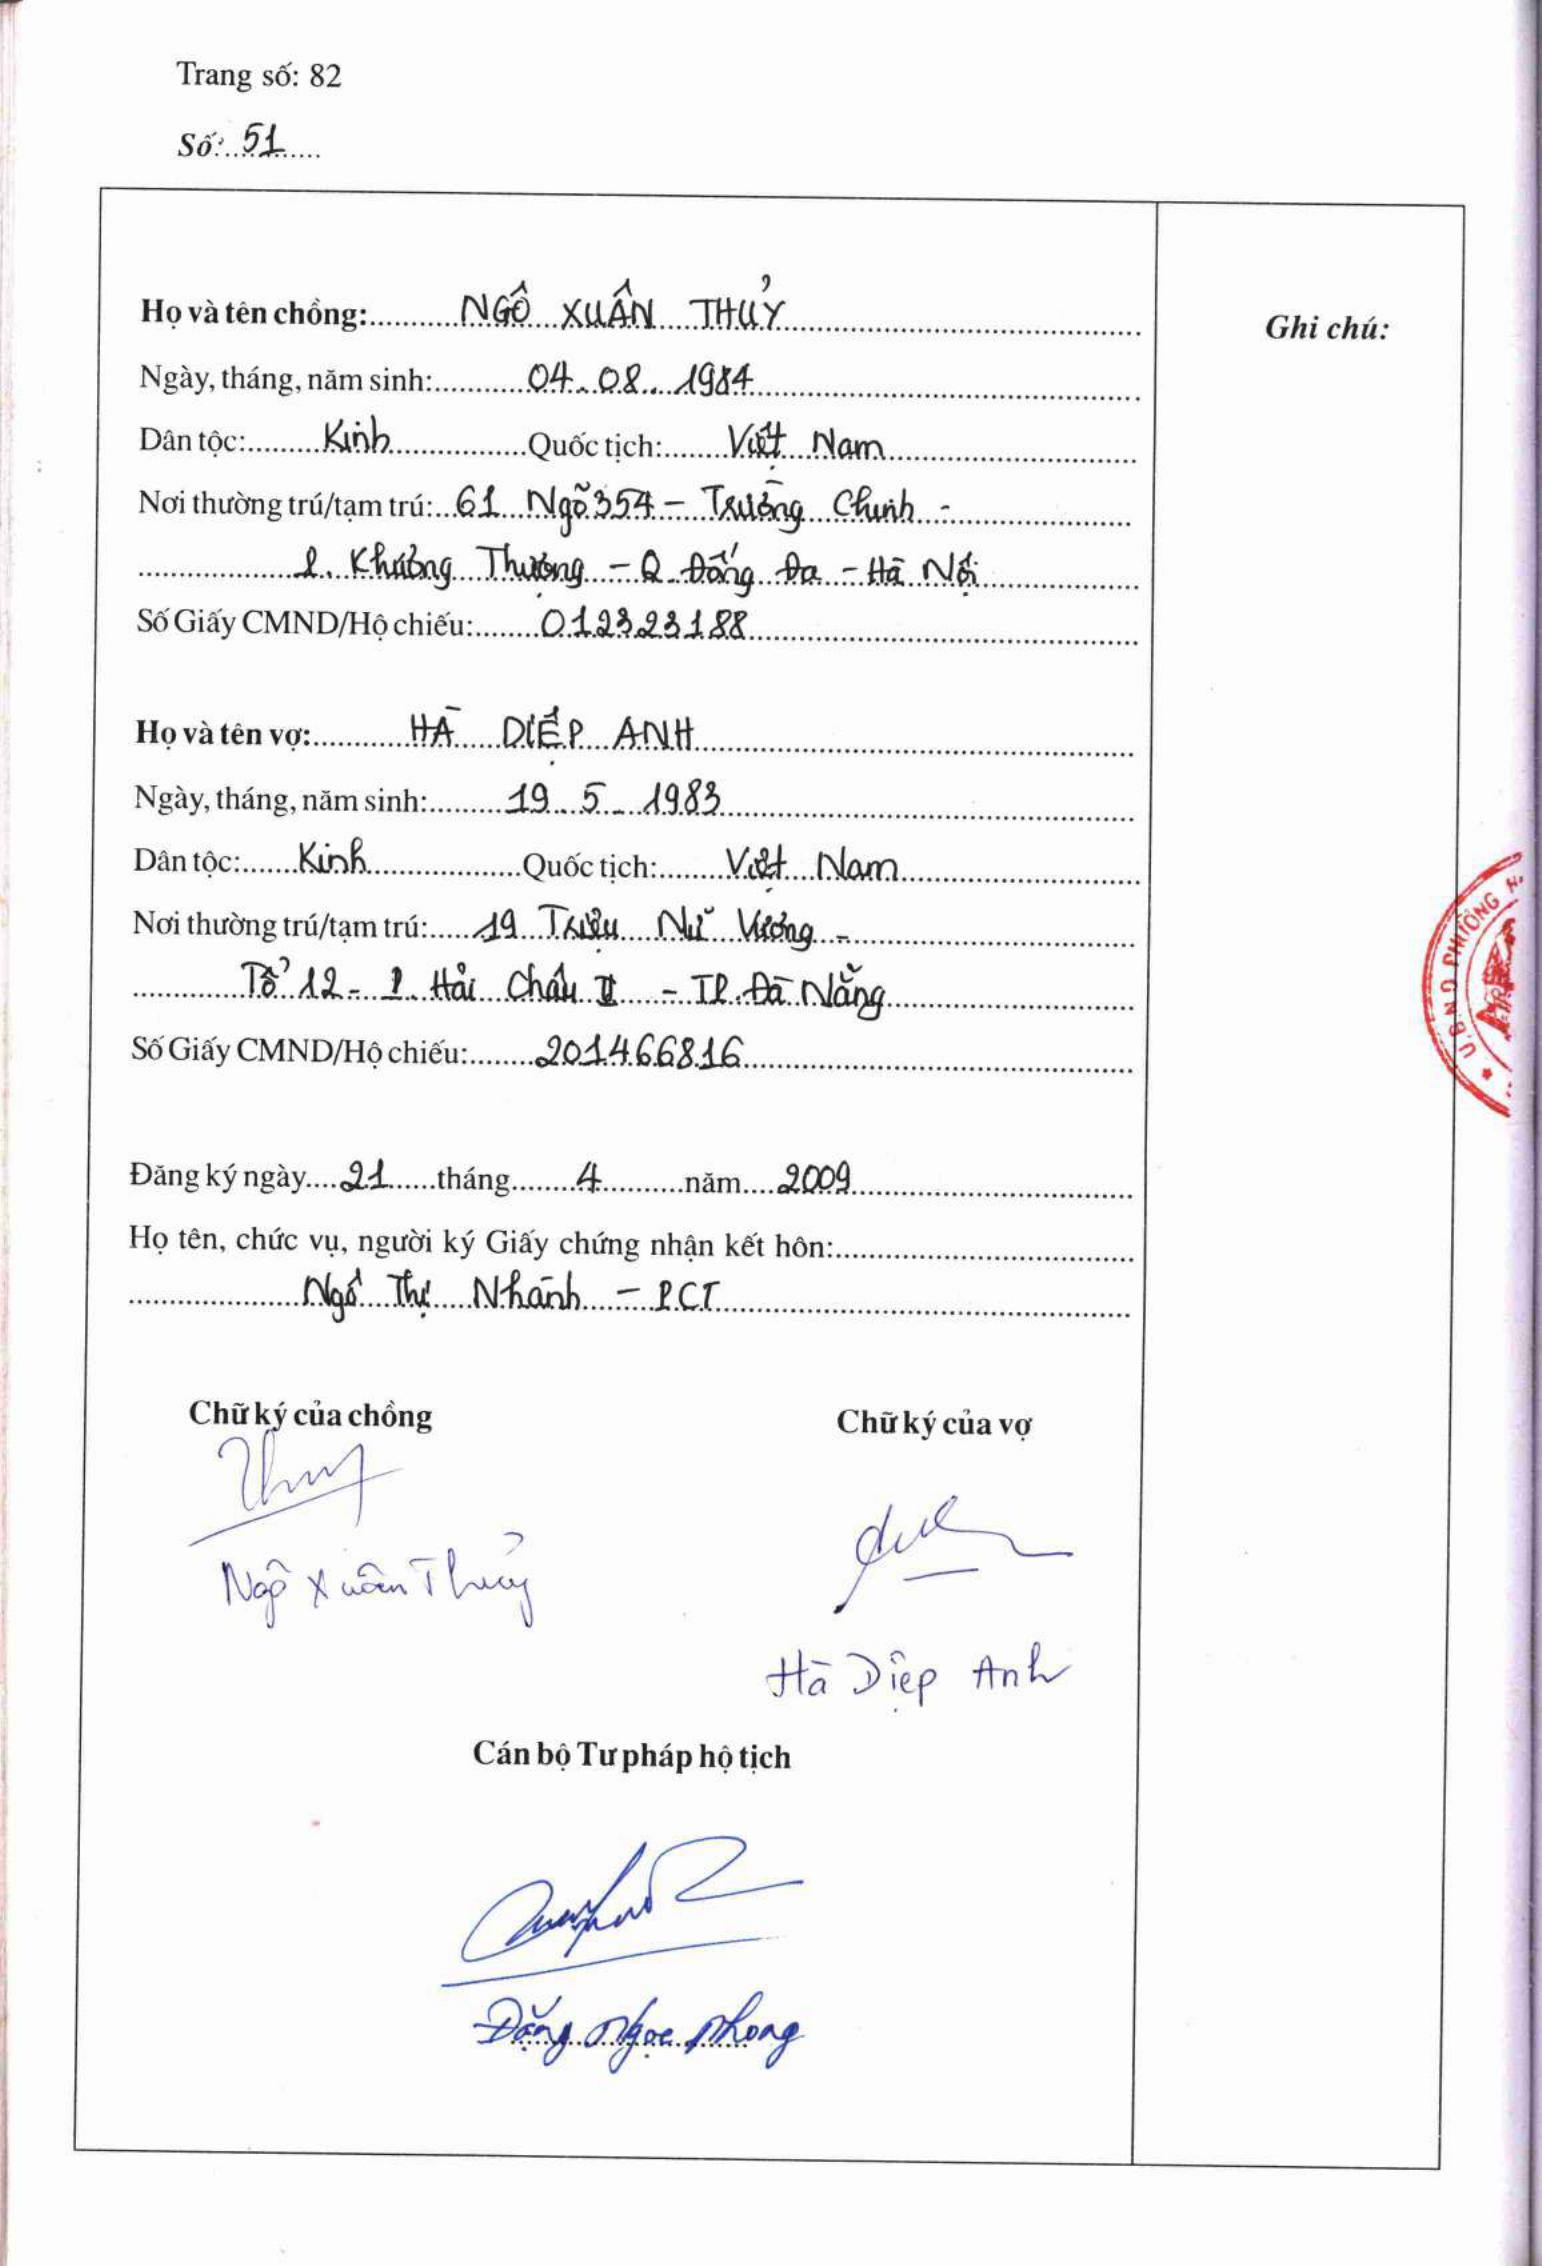 Trang số: 82
Số: 51
Họ và tên chồng: NGÔ XUÂN THUỶ
Ghi chú:
Ngày, tháng, năm sinh: 04.08.1984
Dân tộc: Kinh Quốc tịch: Việt Nam
Nơi thường trú/tạm trú: 61 Ngõ 354 - Trường Chinh -
P. Khương Thượng - Q Đống Đa - Hà Nội
Số Giấy CMND/Hộ chiếu: 012323188
Họ và tên vợ: HÀ DIỆP ANH
Ngày, tháng, năm sinh: 19.5-1983
Dân tộc: Kinh Quốc tịch: Việt Nam
Nơi thường trú/tạm trú: 19 Triệu Nữ Vương -
Tổ 12 - P. Hải Châu II - TP. Đà Nẵng
Số Giấy CMND/Hộ chiếu: 201466816
U.B.N.D PHƯỜNG H
Đăng ký ngày 21 tháng 4 năm 2009
Họ tên, chức vụ, người ký Giấy chứng nhận kết hôn:
Ngô Thị Nhành - PCT
Chữ ký của chồng Chữ ký của vợ
Ngô Xuân Thuỷ
Hà Diệp Anh
Cán bộ Tư pháp hộ tịch
Đặng Ngọc Phong